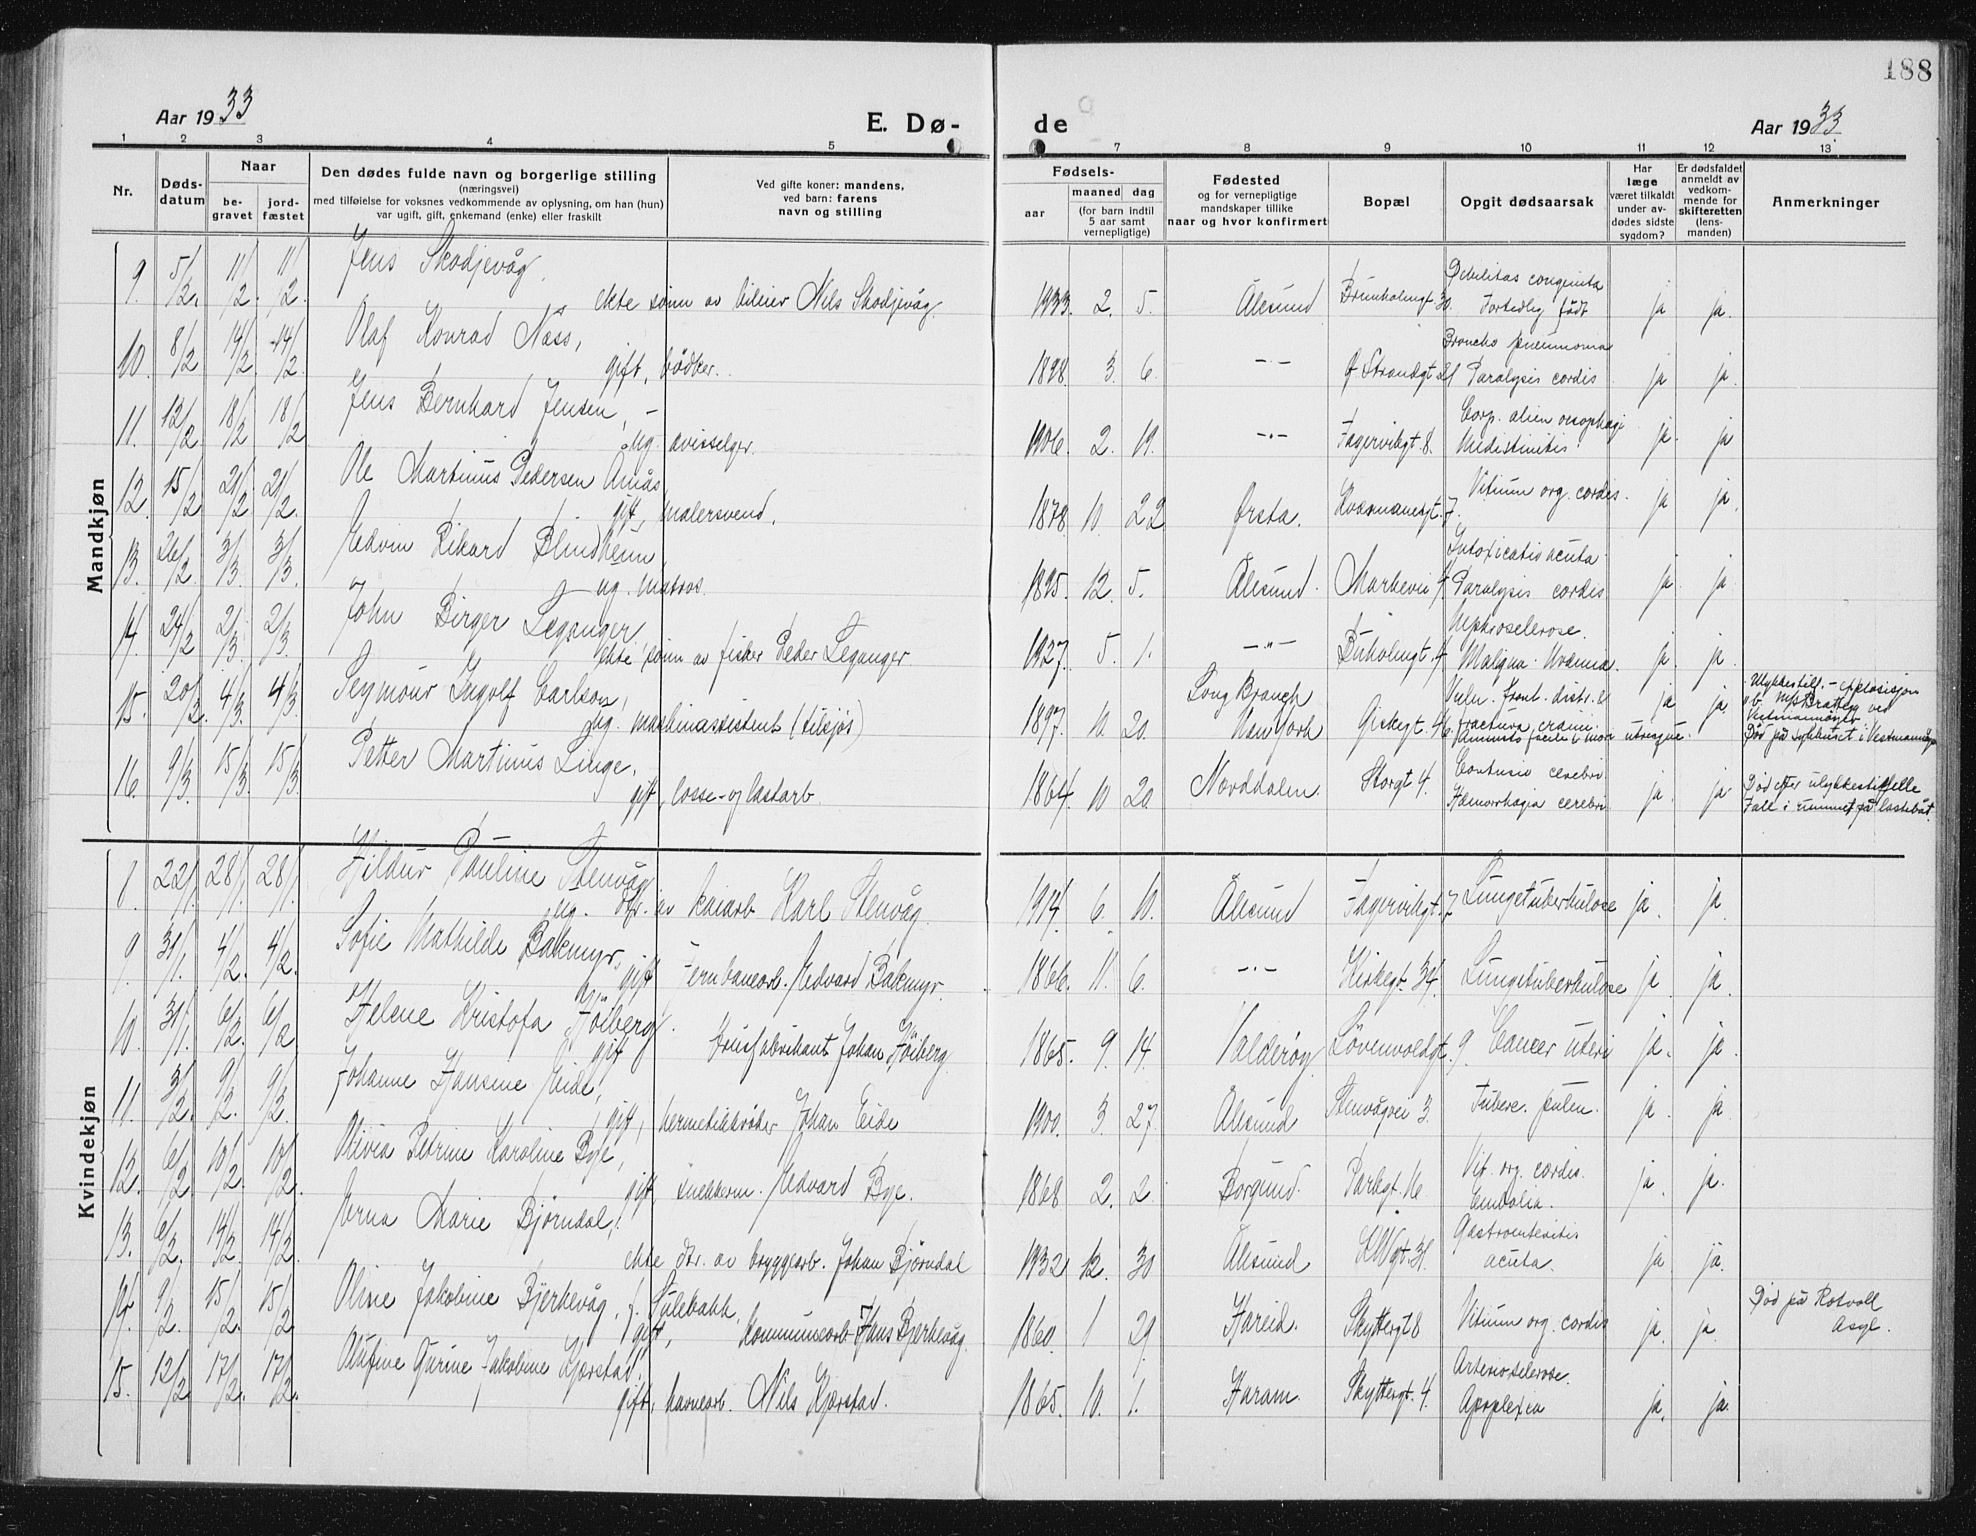 188
Aar 1933
E. Dø- de
Aar 1933
1 2 3 4 5 7 8 9 10 11 12 13
Nr.
Døds-
datum
Naar
be-
gravet
jord-
fæstet
Den dødes fulde navn og borgerlige stilling
(næringsvei)
med tilføielse for voksnes vedkommende av oplysning, om han (hun)
var ugift, gift, enkemand (enke) eller fraskilt
Ved gifte koner: mandens,
ved barn: farens
navn og stilling
Fødsels-
aar
maaned dag
(for barn indtil
5 aar samt
vernepligtige)
Fødested
og for vernepligtige
mandskaper tillike
naar og hvor konfirmert
Bopæl
Opgit dødsaarsak
Har
læge
været tilkaldt
under av-
dødes sidste
sygdom?
Er dødsfaldet
anmeldt av
vedkom-
mende for
skifteretten
(lens-
manden)
Anmerkninger
Mandkjøn
9. 5/2. 11/2. 11/2. Jens Skodjevåg,
ekte sønn av bileier Nils Skodjevåg. 1933. 2. 5. Ålesund Brunholmgt. 30. Debilitas congenita
Fortidlig født ja ja.
10. 8/2 14/2. 14/2. Olaf Konrad Näss,
gift, bødker. 1898. 3. 6. -"- Ø Strandgt 21 Broncho pneumonia
Paralysis cordis ja ja.
11. 12/2 18/2 18/2 Jens Bernhard Jensen,
ug. avisselger. 1906. 2. 19. -"- Fagervikgt 8. Corp. alien oesophagi
Medistinitis ja. ja
12. 15/2 21/2 21/2. Ole Martinus Pedersen Åmås
gift, malersvend. 1878. 10. 22 Ørsta. 7. Vitium org. cordis. ja ja.
13. 26/2. 3/3. 3/3. Edvin Rikard Blindheim
ug. matros. 1895. 12. 5. Ålesund. Markevei 4. Intoxicatio acuta
Paralysis cordis ja. ja
14. 24/2 2/3. 2/3. John Birger Leganger
ekte sønn av fisker Peder Leganger. 1927. 5. 1. -"- Buholmgt. 4 Nephrosclerose.
Maligna. Uræmia. ja. ja.
15. 20/2. 4/3. 4/3. Seymour Ingolf Carlson,
ug. maskinassistent (tilsjøs) 1897. 10. 20. Long Branch
New York Giskegt. 46. Vuln. front. distr. &
fractura cranii
ja ja. Ulykkestilf. - eksplosisjon
Død på sykehuset i Vestmannøy
16. 9/3. 15/3. 15/3. Petter Martinus Linge,
gift, losse- og lastarb. 1864. 10 20. Norddalen. Storgt 4. Contusio cerebri
Hæmorrhagia cerebri ja. ja. Død efter ulykkestilfelle
Fall i rummet på lastebåt.
Kvindekjøn
8. 22/1. 28/1. 28/1. Hildur Pauline Stenvåg
ug. dtr. av kaiarb Karl Stenvåg. 1914. 6. 10. Ålesund Fagervikgt. 7 Lungetuberkulose ja. ja.
9. 31/1. 4/2. 4/2. Sofie Mathilde Bakmyr,
gift Jernbanearb. Edvard Bakmyr. 1866. 11. 6. -"- Kirkegt. 34. Lungetuberkulose ja. ja.
10. 31/1. 6/2. 6/2 Helene Kristofa Høiberg.
gift brusfabrikant Johan Høiberg. 1865. 9. 14. Valderøy Løvenvoldgt. 9 Cancer uteri ja. ja.
11. 3/2. 9/2. 9/2. Johanne Hansine Eide,
gift, hermetikkarb Johan Eide 1900. 3. 27. Ålesund Stenvågvei 3. Tuberc. pulm. ja. ja
12. 6/2 10/2. 10/2. Olivia Petrine Karoline Bye,
gift snekkerm. Edvard Bye. 1868 2. 2. Borgund. Parkgt. 16. Vit. org. cordis.
Embolia. ja. ja.
13. 6/2. 14/2. 14/2. Erna Marie Bjørndal,
ekte dtr. av bryggearb. Johan Bjørndal 1932 12. 30 Ålesund 31. Gastroenteritis
acuta. ja ja.
14. 9/2. 15/2. 15/2 Oline Jakobine Bjerkevåg, f. Sulebakk,
gift, Kommunearb Hans Bjerkevåg. 1860. 1 29. Hareid. Skyttergt 8 Vitium org. cordis ja. ja Død på Rotvoll
Asyl.
15. 12/2 17/2. 17/2. Olufine Gurine Jakobine Kjærstad,
gift, havnearb. Nils Kjærstad. 1865. 10. 1. Haram. Skyttergt. 4. Arteriosclerose.
Apoplexia ja. ja.